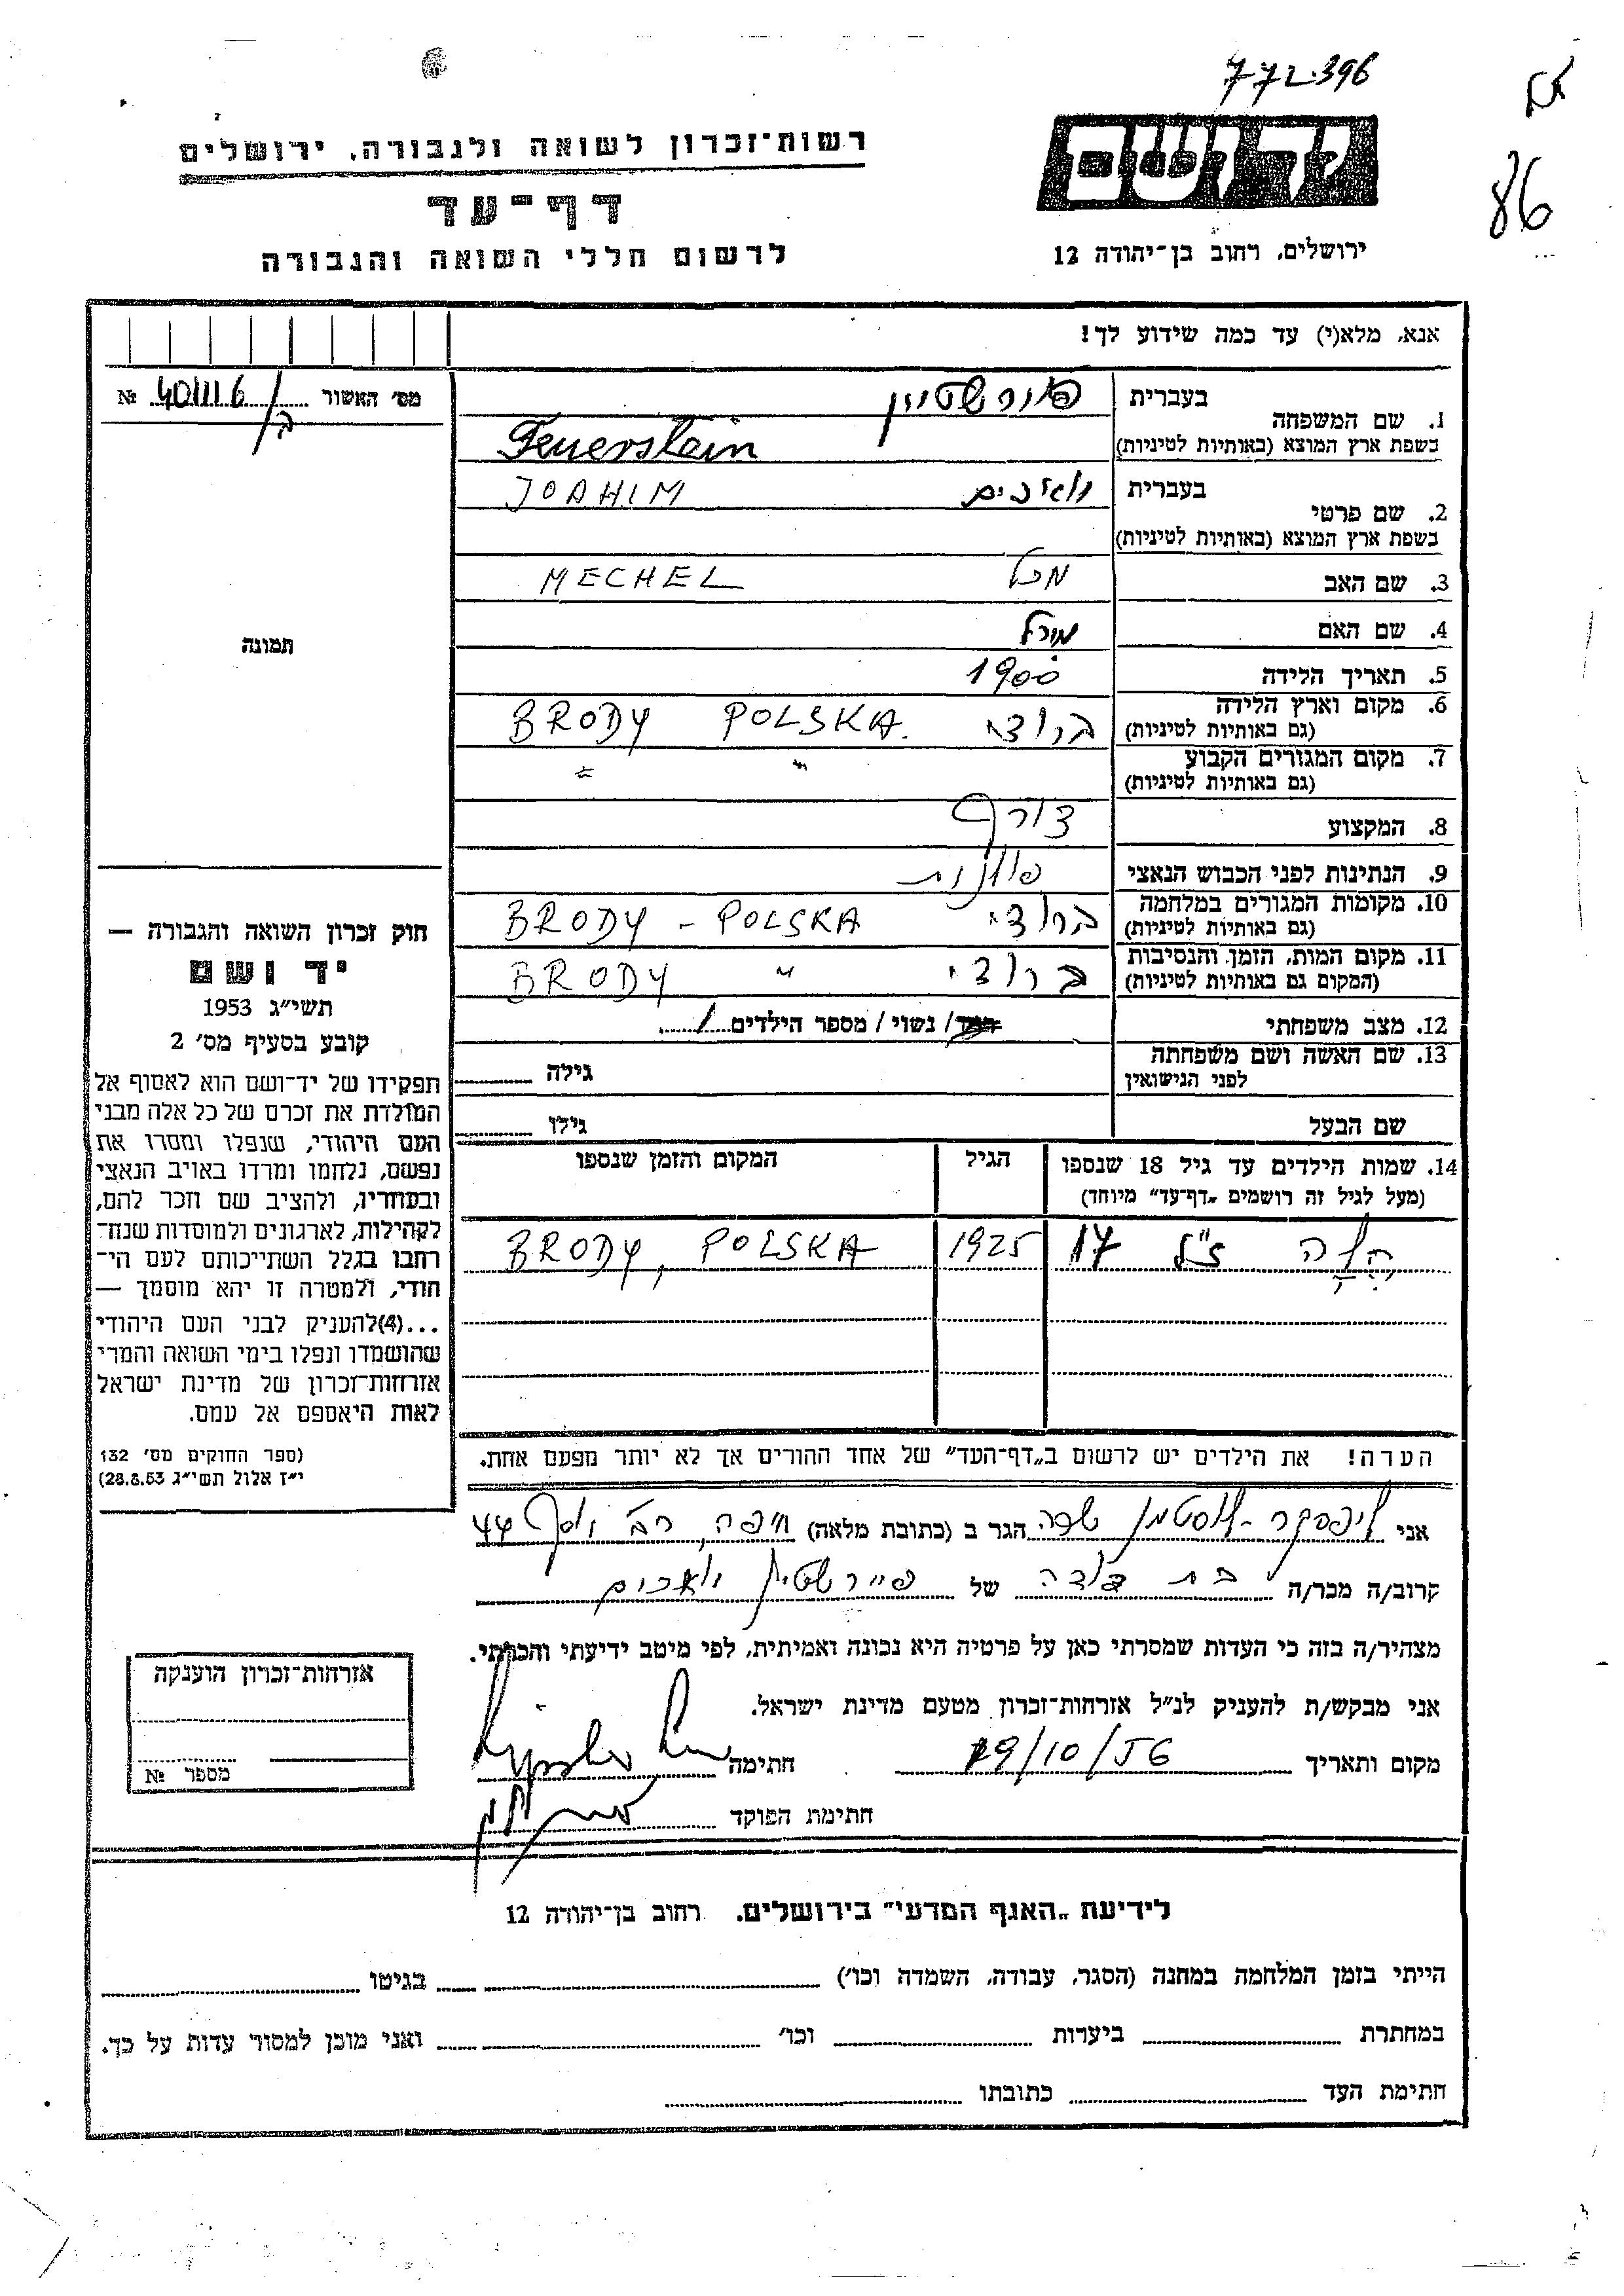 772396
86
רשות־זכרון לשואה ולגבורה, ירושלים
דף־עד
לרשום חללי השואה והגבורה
ידושם
ירושלים, רחוב בן־יהודה 12
אנא, מלא(י) עד כמה שידוע לך!
מס׳ האשור № 40/116
1. שם המשפחה
בעברית
פוירשטיין
בשפת ארץ המוצא (באותיות לטיניות)
Feuerstein
2. שם פרטי
בעברית
JOAHIM
בשפת ארץ המוצא (באותיות לטיניות)
3. שם האב
מכל MECHEL
4. שם האם
5. תאריך הלידה
1900
6. מקום וארץ הלידה
(גם באותיות לטיניות)
ברודי BRODY POLSKA.
7. מקום המגורים הקבוע
(גם באותיות לטיניות)
" "
8. המקצוע
צורף
9. הנתינות לפני הכבוש הנאצי
פולנית
10. מקומות המגורים במלחמה
(גם באותיות לטיניות)
ברודי BRODY - POLSKA
11. מקום המות, הזמן והנסיבות
(המקום גם באותיות לטיניות)
ברודי BRODY "
12. מצב משפחתי
רווק / נשוי / מספר הילדים 1
13. שם האשה ושם משפחתה
לפני הנישואין
גילה
שם הבעל
גילו
14. שמות הילדים עד גיל 18 שנספו
(מעל לגיל זה רושמים „דף־עד״ מיוחד)
הגיל
המקום והזמן שנספו
ז"ל 17 1925 BRODY, POLSKA
הערה! את הילדים יש לרשום ב„דף־העד״ של אחד ההורים אך לא יותר מפעם אחת.
תמונה
חוק זכרון השואה והגבורה —
יד ושם
תשי״ג 1953
קובע בסעיף מס׳ 2
תפקידו של יד־ושם הוא לאסוף אל
המולדת את זכרם של כל אלה מבני
העם היהודי, שנפלו ומסרו את
נפשם, נלחמו ומרדו באויב הנאצי
ובעוזריו, ולהציב שם וזכר להם,
לקהילות, לארגונים ולמוסדות שנח־
רבו בגלל השתייכותם לעם הי־
הודי, ולמטרה זו יהא מוסמך —
...(4)להעניק לבני העם היהודי
שהושמדו ונפלו בימי השואה והמרי
אזרחות־זכרון של מדינת ישראל
לאות היאספם אל עמם.
(ספר החוקים מס׳ 132
י״ז אלול תשי״ג 28.8.53)
אני הגר ב (כתובת מלאה) חיפה, רב׳ יוסף 44
קרוב/ה מכר/ה בת דודה של
מצהיר/ה בזה כי העדות שמסרתי כאן על פרטיה היא נכונה ואמיתית, לפי מיטב ידיעתי והכרתי.
אני מבקש/ת להעניק לנ״ל אזרחות־זכרון מטעם מדינת ישראל.
מקום ותאריך 29/10/56 חתימה
חתימת הפוקד
אזרחות־זכרון הוענקה
מספר №
לידיעת „האגף המדעי״ בירושלים. רחוב בן־יהודה 12
הייתי בזמן המלחמה במחנה (הסגר, עבודה, השמדה וכו׳) בגיטו
במחתרת ביערות וכו׳ ואני מוכן למסור עדות על כך.
חתימת העד כתובתו